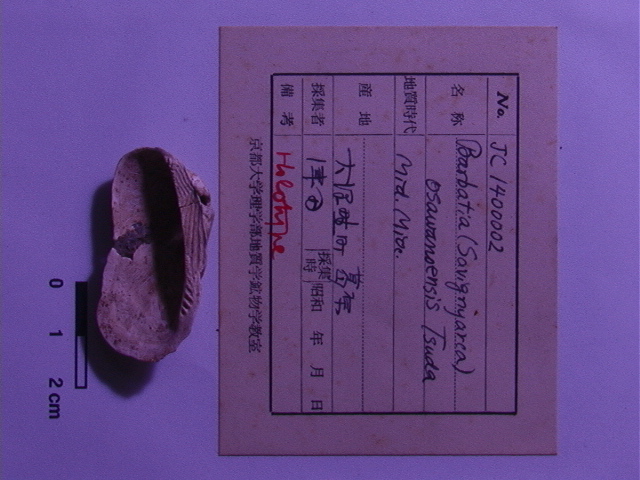 No. JC 1400002
名称 Barbatia (Savignyarca)
osawanoensis Tsuda
地質時代 Mid. Mio.
産地
大沢野町 葛原
採集者 津田 採集時 昭和 年 月 日
備考 Holotype
京都大学理学部地質学鉱物学教室
0 1 2 cm